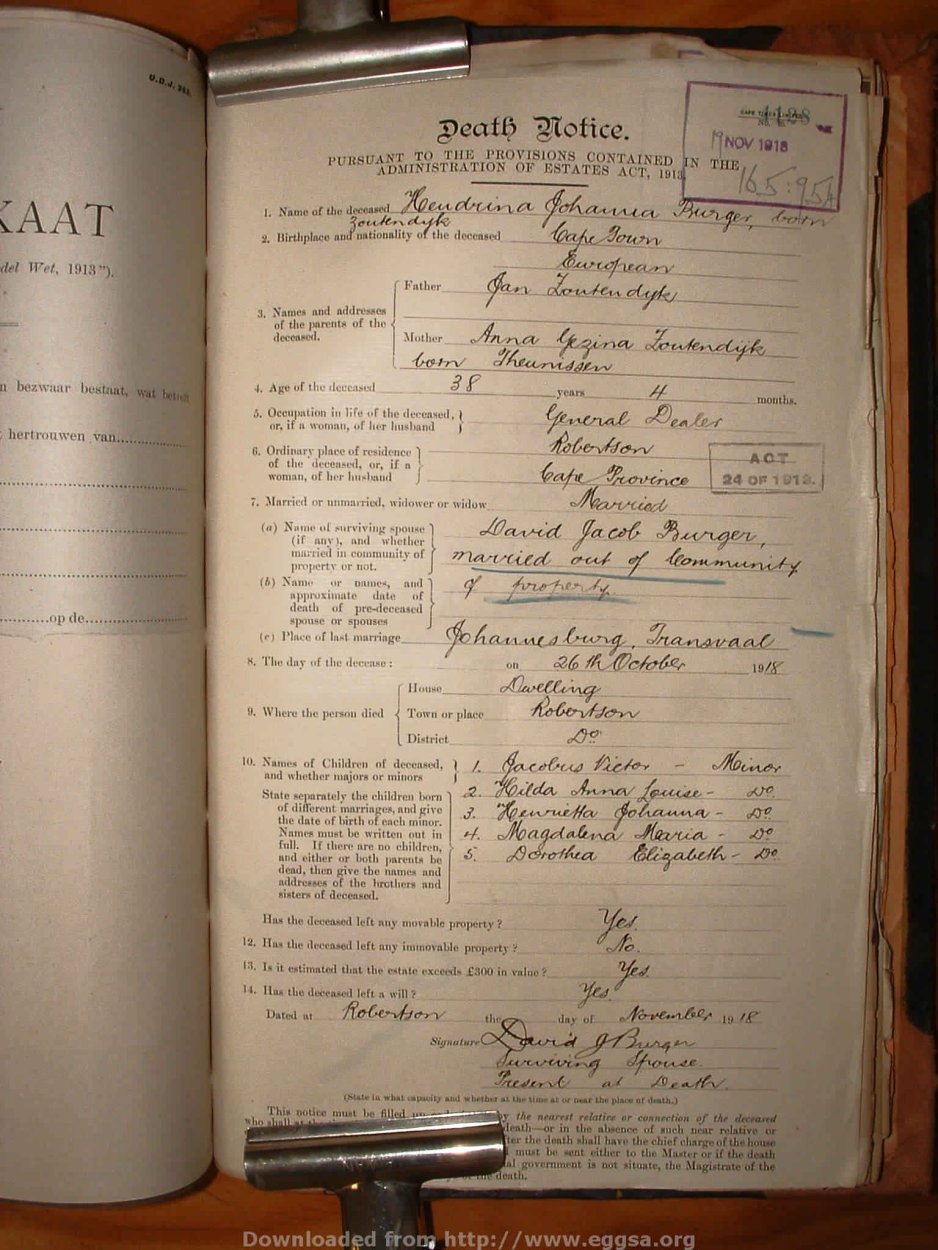 U.D.J. 263.
KAAT
del Wet, 1913").
n bezwaar bestaat, wat betreft
hertrouwen van
op de
Death Notice.
PURSUANT TO THE PROVISIONS CONTAINED IN THE
ADMINISTRATION OF ESTATES ACT, 1913
CAPE TIMES LIMITED
1128
19 NOV 1918
1. Name of the deceased Hendrina Johanna Burger, born
Zoutendyk
2. Birthplace and nationality of the deceased Cape Town
European
3. Names and addresses of the parents of the deceased.
Father Jan Zoutendyk
Mother Anna Gezina Zoutendijk
born Theunissen
4. Age of the deceased 38 years 4 months.
5. Occupation in life of the deceased, or, if a woman, of her husband General Dealer
6. Ordinary place of residence of the deceased, or, if a woman, of her husband Robertson
Cape Province
ACT
24 OF 1913.
7. Married or unmarried, widower or widow Married
(a) Name of surviving spouse (if any), and whether married in community of property or not. David Jacob Burger,
married out of Community
(b) Name or names, and approximate date of death of pre-deceased spouse or spouses
of property.
(c) Place of last marriage Johannesburg, Transvaal
8. The day of the decease: on 26th October 1918
9. Where the person died
House Dwelling
Town or place Robertson
District Do
10. Names of Children of deceased, and whether majors or minors
State separately the children born
of different marriages, and give
the date of birth of each minor.
Names must be written out in
full. If there are no children,
and either or both parents be
dead, then give the names and
addresses of the brothers and
sisters of deceased.
1. Jacobus Victor - Minor
2. Hilda Anna Louise - Do.
3. Henrietta Johanna - Do.
4. Magdalena Maria - Do
5. Dorothea Elizabeth - Do.
Has the deceased left any movable property? Yes.
12. Has the deceased left any immovable property? No.
13. Is it estimated that the estate exceeds £300 in value? Yes.
14. Has the deceased left a will? Yes
Dated at Robertson the day of November 1918
Signature David J Burger
Surviving Spouse.
Present at Death.
(State in what capacity and whether at the time at or near the place of death.)
This notice must be filled up by the nearest relative or connection of the deceased
who shall at the death—or in the absence of such near relative or
after the death shall have the chief charge of the house
must be sent either to the Master or if the death
government is not situate, the Magistrate of the
death.
Downloaded from http://www.eggsa.org